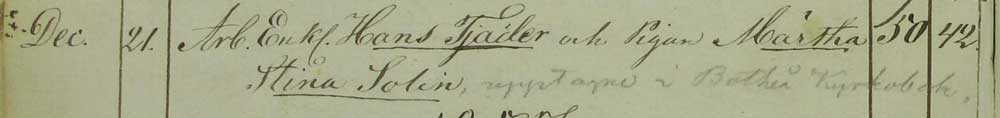 Dec. 21. Arb. Enkl. Hans Tjäder och Pigan Märtha 50 42.
Stina Solin, upptagne i Botheå Kyrkobok.